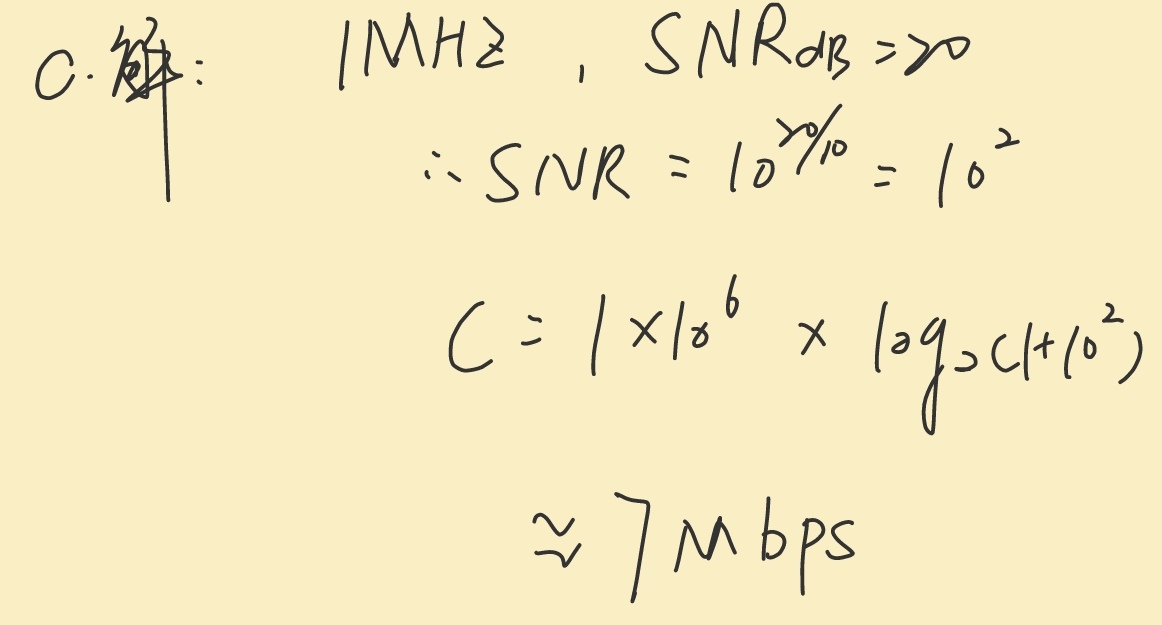 C. 解: 1MHz , SNR_dB = 20
∴ SNR = 10^20/10 = 10^2
C = 1×10^6 × log_2(1+10^2)
≈ 7Mbps